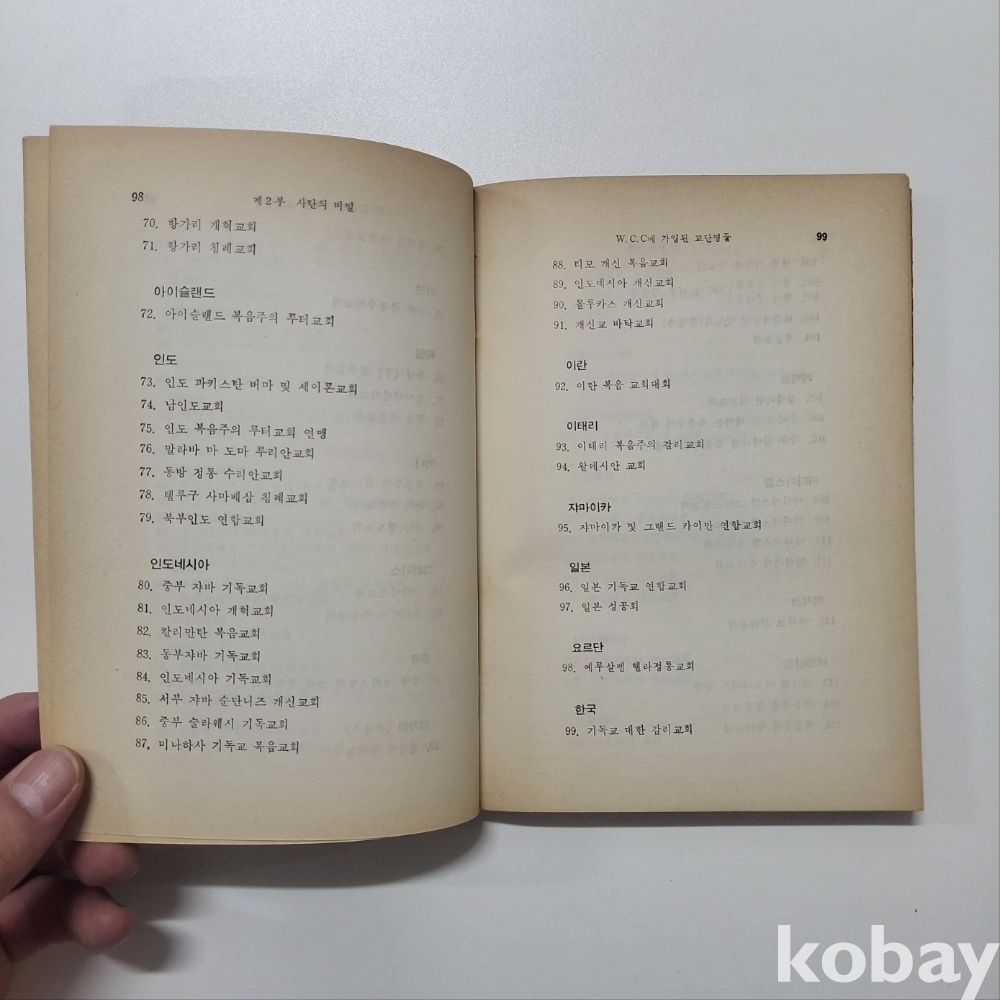 98
제2부 사탄의 비밀
70. 항가리 개혁교회
71. 항가리 침례교회
아이슬랜드
72. 아이슬랜드 복음주의 루터교회
인도
73. 인도 파키스탄 버마 및 세이론교회
74. 남인도교회
75. 인도 복음주의 루터교회 연맹
76. 말라바 마 도마 루리안교회
77. 동방 정통 수리안교회
78. 텔루구 사마베삼 침례교회
79. 북부인도 연합교회
인도네시아
80. 중부 쟈바 기독교회
81. 인도네시아 개혁교회
82. 칼리만탄 복음교회
83. 동부쟈바 기독교회
84. 인도네시아 기독교회
85. 서부 쟈바 순단니즈 개신교회
86. 중부 술라웨시 기독교회
87. 미나하사 기독교 복음교회
W.C.C에 가입된 교단명들
99
88. 티모 개신 복음교회
89. 인도네시아 개신교회
90. 몰루카스 개신교회
91. 개신교 바탁교회
이란
92. 이란 복음 교회대회
이태리
93. 이태리 복음주의 감리교회
94. 왈데시안 교회
쟈마이카
95. 쟈마이카 및 그랜드 카이만 연합교회
일본
96. 일본 기독교 연합교회
97. 일본 성공회
요르단
98. 예루살렘 헬라정통교회
한국
99. 기독교 대한 감리교회
kobay